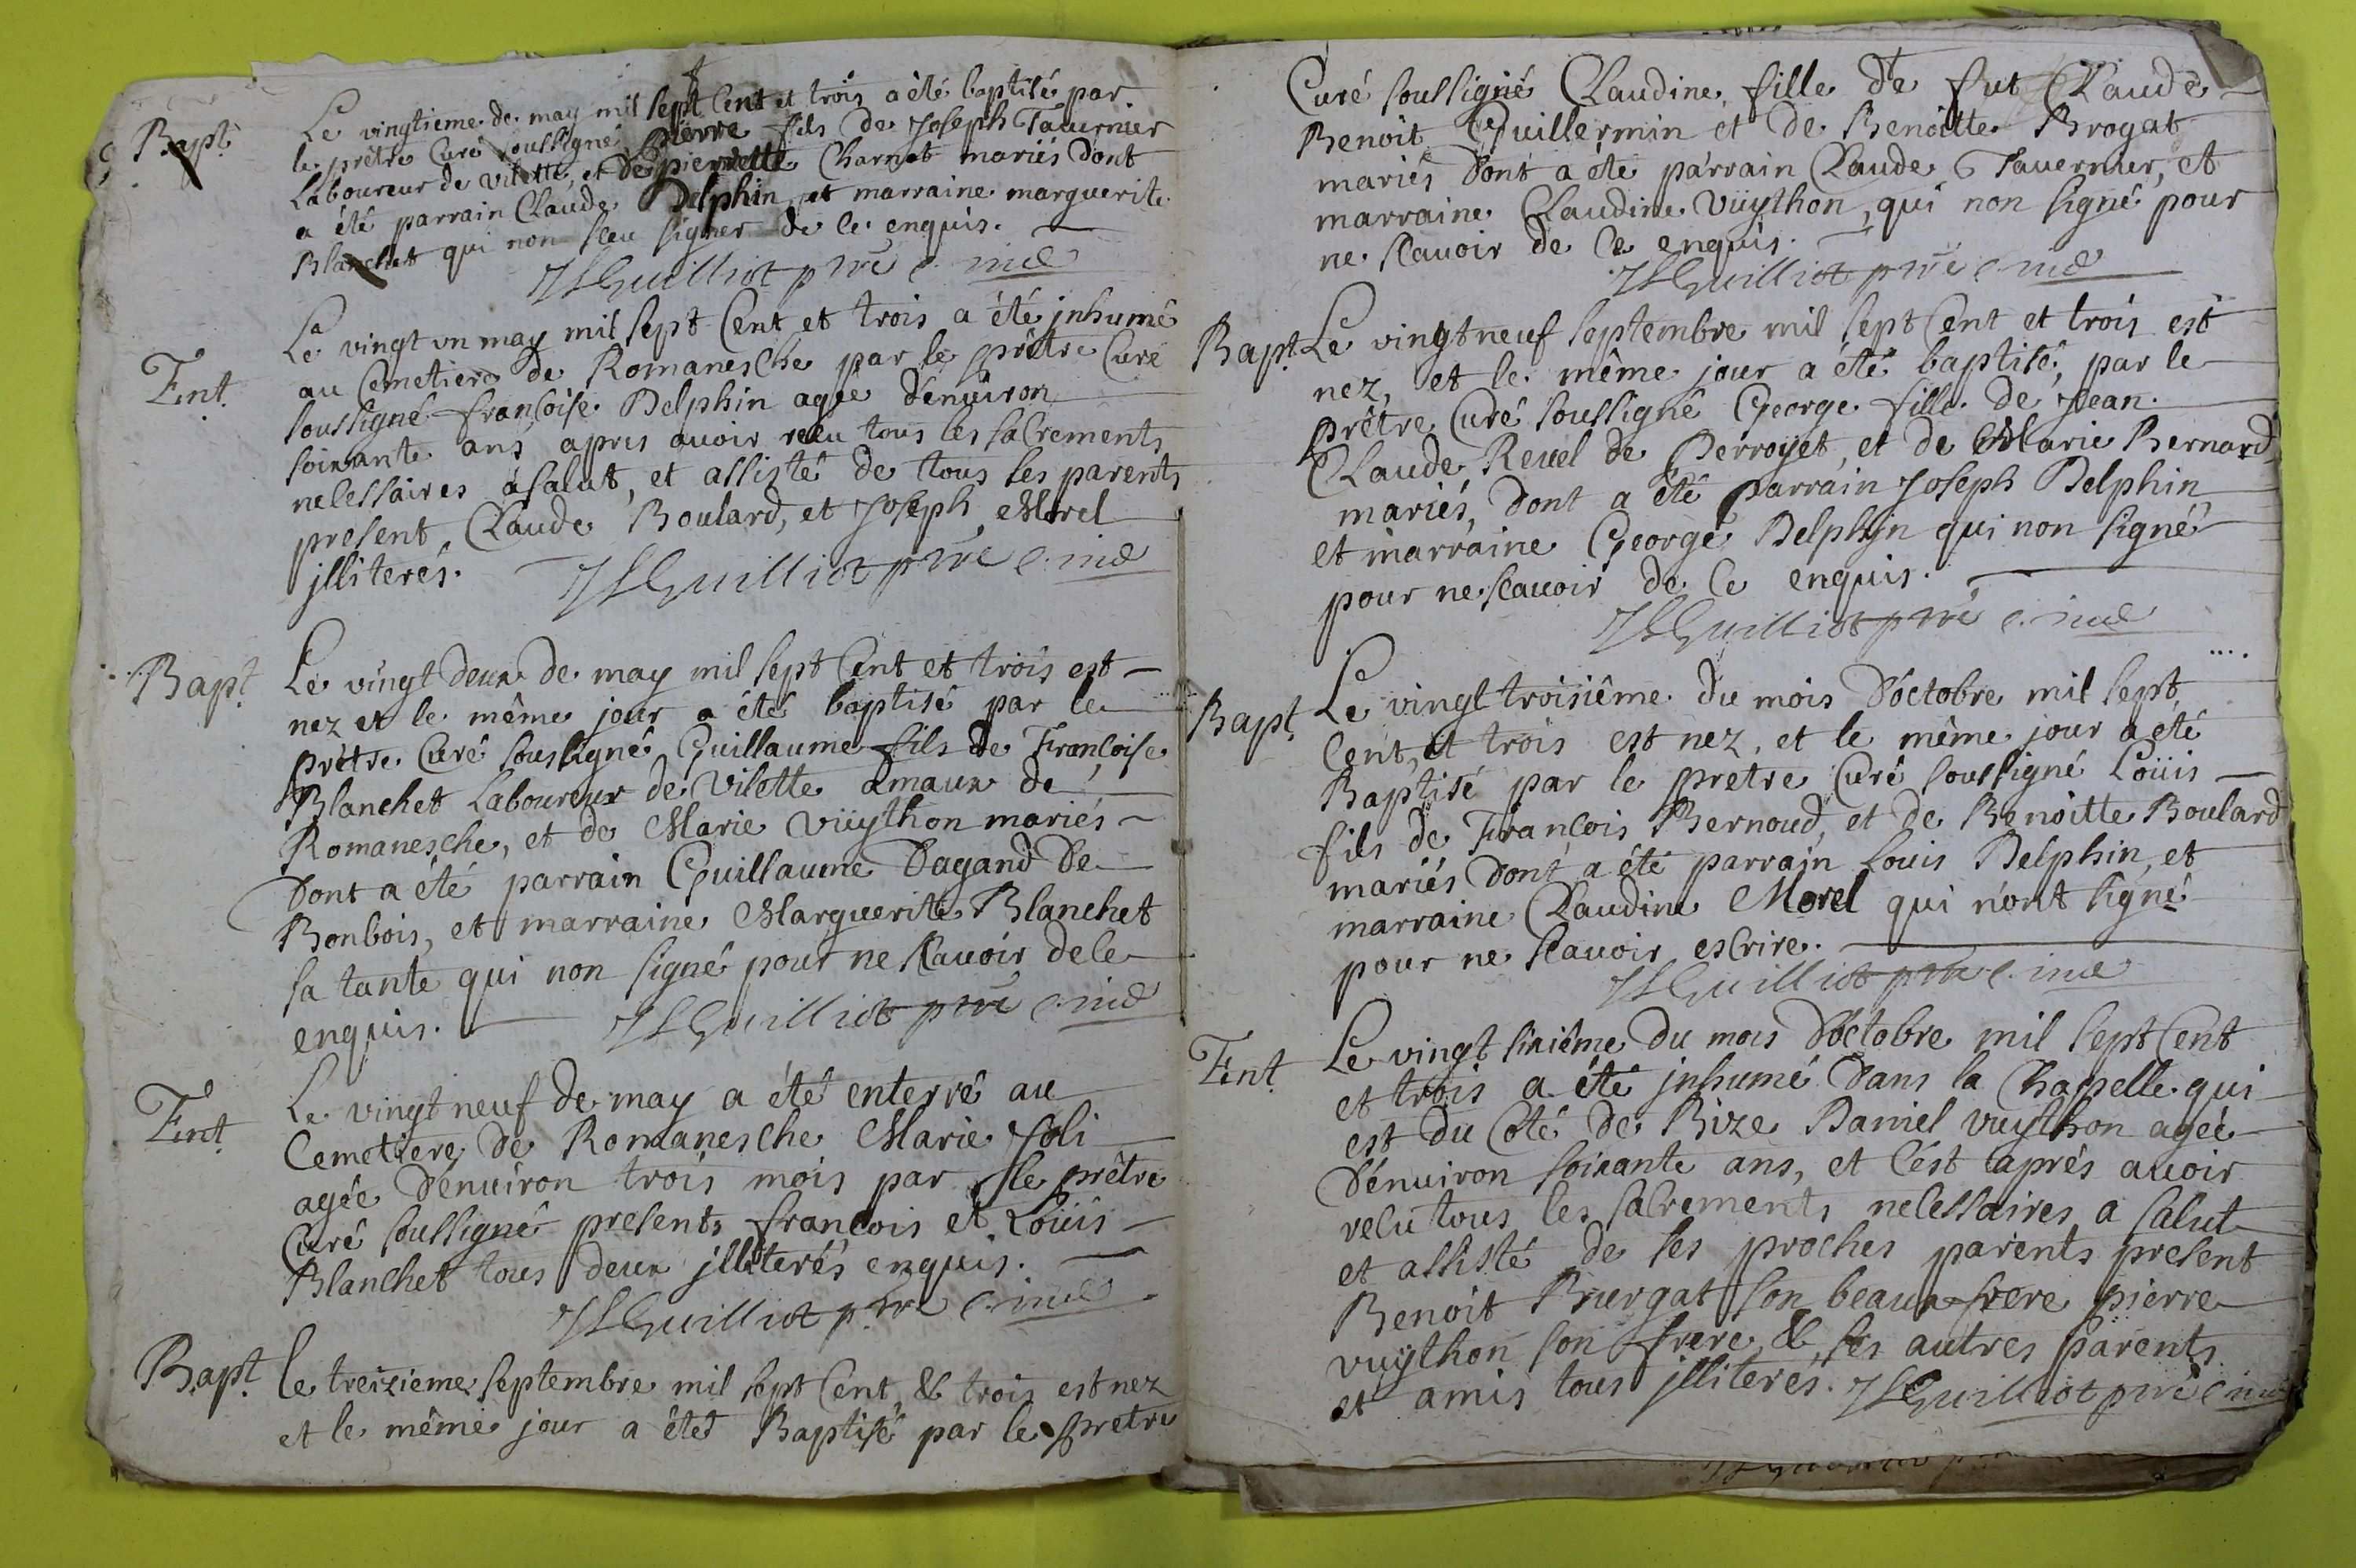 Bapt. Le vingtieme de may mil sept Cent et trois a été baptisé par
le prêtre Curé soussigné, Pierre fils de Joseph Tavernier
Laboureur de Vilette, et de pierrette Charnot mariés Dont
a été parrain Claude Delphin, et marraine marguerite
Blanchet qui non sceu signer de ce enquis.
JSGuilliot ptre
Ent. Le vingt un may mil sept Cent et trois a été jnhumé
au Cemetiere de Romanesche par le prêtre Curé
soussigné françoise Delphin agée d'enuiron
soixante ans apres auoir receu tous les sacrements
necessaires à salut, et assisté de tous ses parents
present Claude Boulard, et Joseph Morel
jlliterés. JSGuilliot ptre
Bapt. Le vingt deux de may mil sept Cent et trois est
nez et le même jour a été baptisé par le
prêtre Curé soussigné Guillaume fils de Françoise
Blanchet Laboureur de Vilette amaux de
Romanesche, et de Marie Vüython mariés
Dont a été parrain Guillaume Dagand De
Bonbois, et marraine Marguerite Blanchet
sa tante qui non signé pour ne scauoir de ce
enquis. JSGuilliot ptre
Ent. Le vingt neuf de may a été enterré au
Cemetiere de Romanesche Marie Joli
agée d'enuiron trois mois par le prêtre
Curé soussigné presents francois et Loüis
Blanchet tous deux jlliterés enquis.
JSGuilliot ptre
Bapt. le treizieme septembre mil sept Cent & trois est nez
et le même jour a étet Baptisé par le pretre
Curé soussigné Claudine, fille de fut Claude
Benoit Guillermin et de Benoitte Brogat
mariés Dont a été parrain Claude Tauernier, et
marraine Claudine Vüython, qui non signé pour
ne scauoir de Ce enquis.
JSGuilliot ptre
Bapt. Le vingt neuf septembre mil sept Cent et trois est
nez, et le même jour a été baptisé, par le
prêtre Curé soussigné George fille de Jean
Claude Reuel de Perroyet, et de Marie Bernard
mariés, Dont a été parrain Joseph Delphin
et marraine George Delphin qui non signé
pour ne scauoir de Ce enquis.
JSGuilliot ptre
Bapt. Le vingt troisiême du mois d'octobre mil sept
Cent, et trois est nez, et le même jour a été
Baptisé par le pretre Curé soussigné Loüis
fils de Francois Bernoud, et de Benoitte Boulard
mariés Dont a été parrain Louis Delphin, et
marraine Claudine Morel qui n'ont signé
pour ne scauoir escrire.
JSGuilliot ptre
Ent. Le vingt sixiême du mois d'octobre mil sept Cent
et trois a été jnhumé Dans la Chappelle qui
est du Côté de Bize Daniel Vuython agée
d'énuiron soixante ans, et C'est aprés auoir
recu tous les sacrements necessaires a salut
et assisté de ses proches parents present
Benoit Burgat son beaux frere pierre
vuython son frere & ses autres parents
et amis tous jlliterés. JSGuilliot ptre